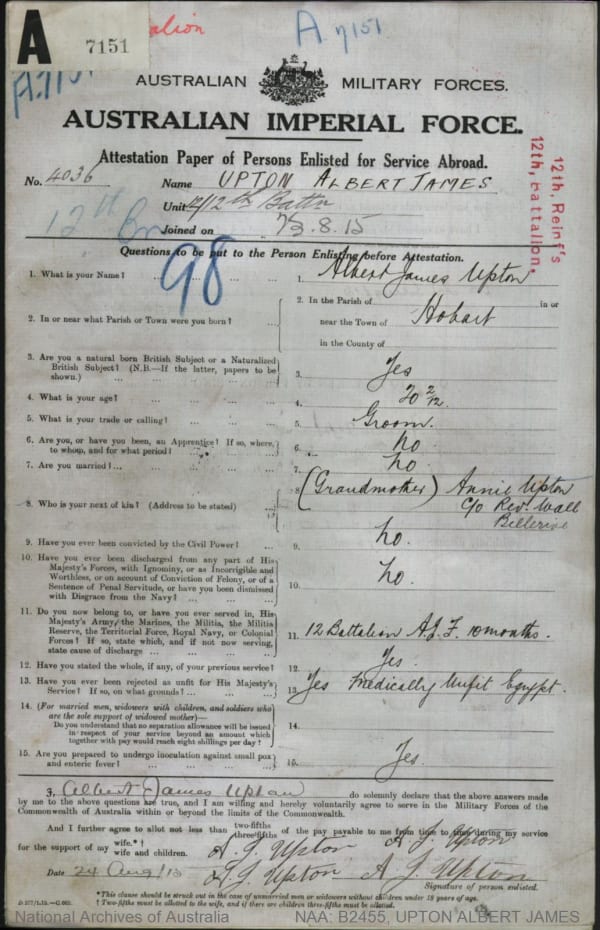 A
7151
talion
A.7151
A.7151
AUSTRALIAN MILITARY FORCES.
AUSTRALIAN IMPERIAL FORCE.
Attestation Paper of Persons Enlisted for Service Abroad.
No. 4036 Name UPTON ALBERT JAMES
Unit 12th Battn
Joined on 8.15
12th Bn
98
12th, Reinf's
12th, Battalion.
Questions to be put to the Person Enlisting before Attestation.
1. What is your Name? 1. Albert James Upton
2. In or near what Parish or Town were you born? 2. In the Parish of in or
near the Town of Hobart
in the County of
3. Are you a natural born British Subject or a Naturalized
British Subject? (N.B.—If the latter, papers to be
shown.) 3. Yes
4. What is your age? 4. 20 2/12
5. What is your trade or calling? 5. Groom.
6. Are you, or have you been, an Apprentice? If so, where,
to whom, and for what period? 6. No
7. Are you married? 7. No.
8. Who is your next of kin? (Address to be stated) 8. (Grandmother) Annie Upton
C/o Revd. Wall
Bellerive
9. Have you ever been convicted by the Civil Power? 9. No.
10. Have you ever been discharged from any part of His
Majesty's Forces, with Ignominy, or as Incorrigible and
Worthless, or on account of Conviction of Felony, or of a
Sentence of Penal Servitude, or have you been dismissed
with Disgrace from the Navy? 10. No.
11. Do you now belong to, or have you ever served in, His
Majesty's Army, the Marines, the Militia, the Militia
Reserve, the Territorial Force, Royal Navy, or Colonial
Forces? If so, state which, and if not now serving,
state cause of discharge 11. 12 Battalion A.I.F. 10 months.
12. Have you stated the whole, if any, of your previous service? 12. Yes.
13. Have you ever been rejected as unfit for His Majesty's
Service? If so, on what grounds? 13. Yes Medically Unfit Egypt.
14. (For married men, widowers with children, and soldiers who
are the sole support of widowed mother)—
Do you understand that no separation allowance will be issued
in respect of your service beyond an amount which
together with pay would reach eight shillings per day? 14.
15. Are you prepared to undergo inoculation against small pox
and enteric fever? 15. Yes.
I, Albert James Upton do solemnly declare that the above answers made
by me to the above questions are true, and I am willing and hereby voluntarily agree to serve in the Military Forces of the
Commonwealth of Australia within or beyond the limits of the Commonwealth.
And I further agree to allot not less than two-fifths three-fifths of the pay payable to me from time to time during my service
for the support of my wife.*† wife and children. A. J. Upton A J Upton
Date 24 Aug /15 A. J. Upton A J Upton
Signature of person enlisted.
*This clause should be struck out in the case of unmarried men or widowers without children under 18 years of age.
† Two-fifths must be allotted to the wife, and if there are children three-fifths must be allotted.
National Archives of Australia NAA: B2455, UPTON ALBERT JAMES